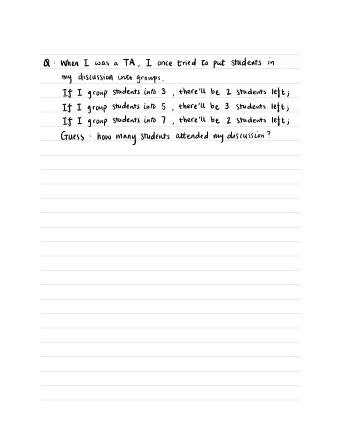 Q : When I was a TA, I once tried to put students in
my discussion into groups.
If I group students into 3 , there'll be 2 students left;
If I group students into 5 , there'll be 3 students left;
If I group students into 7 , there'll be 2 students left;
Guess : how many students attended my discussion?